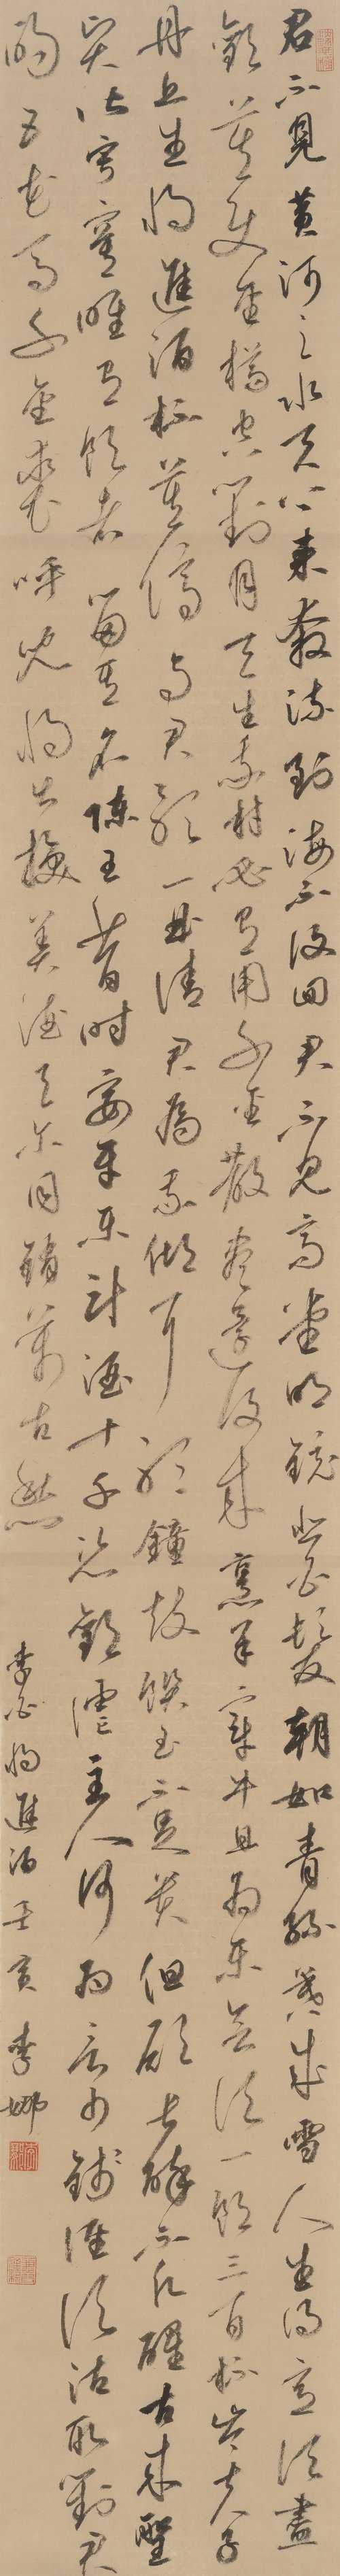 君不見黃河之水天上來奔流到海不復回君不見高堂明鏡悲白髮朝如青絲暮成雪人生得意須盡
歡莫使金樽空對月天生我材必有用千金散盡還復來烹羊宰牛且為樂會須一飲三百杯岑夫子
丹丘生將進酒杯莫停與君歌一曲請君為我傾耳聽鐘鼓饌玉不足貴但願長醉不復醒古來聖
賢皆寂寞唯有飲者留其名陳王昔時宴平樂斗酒十千恣歡謔主人何為言少錢徑須沽取對君
酌五花馬千金裘呼兒將出換美酒與爾同銷萬古愁
李白將進酒壬寅李娜